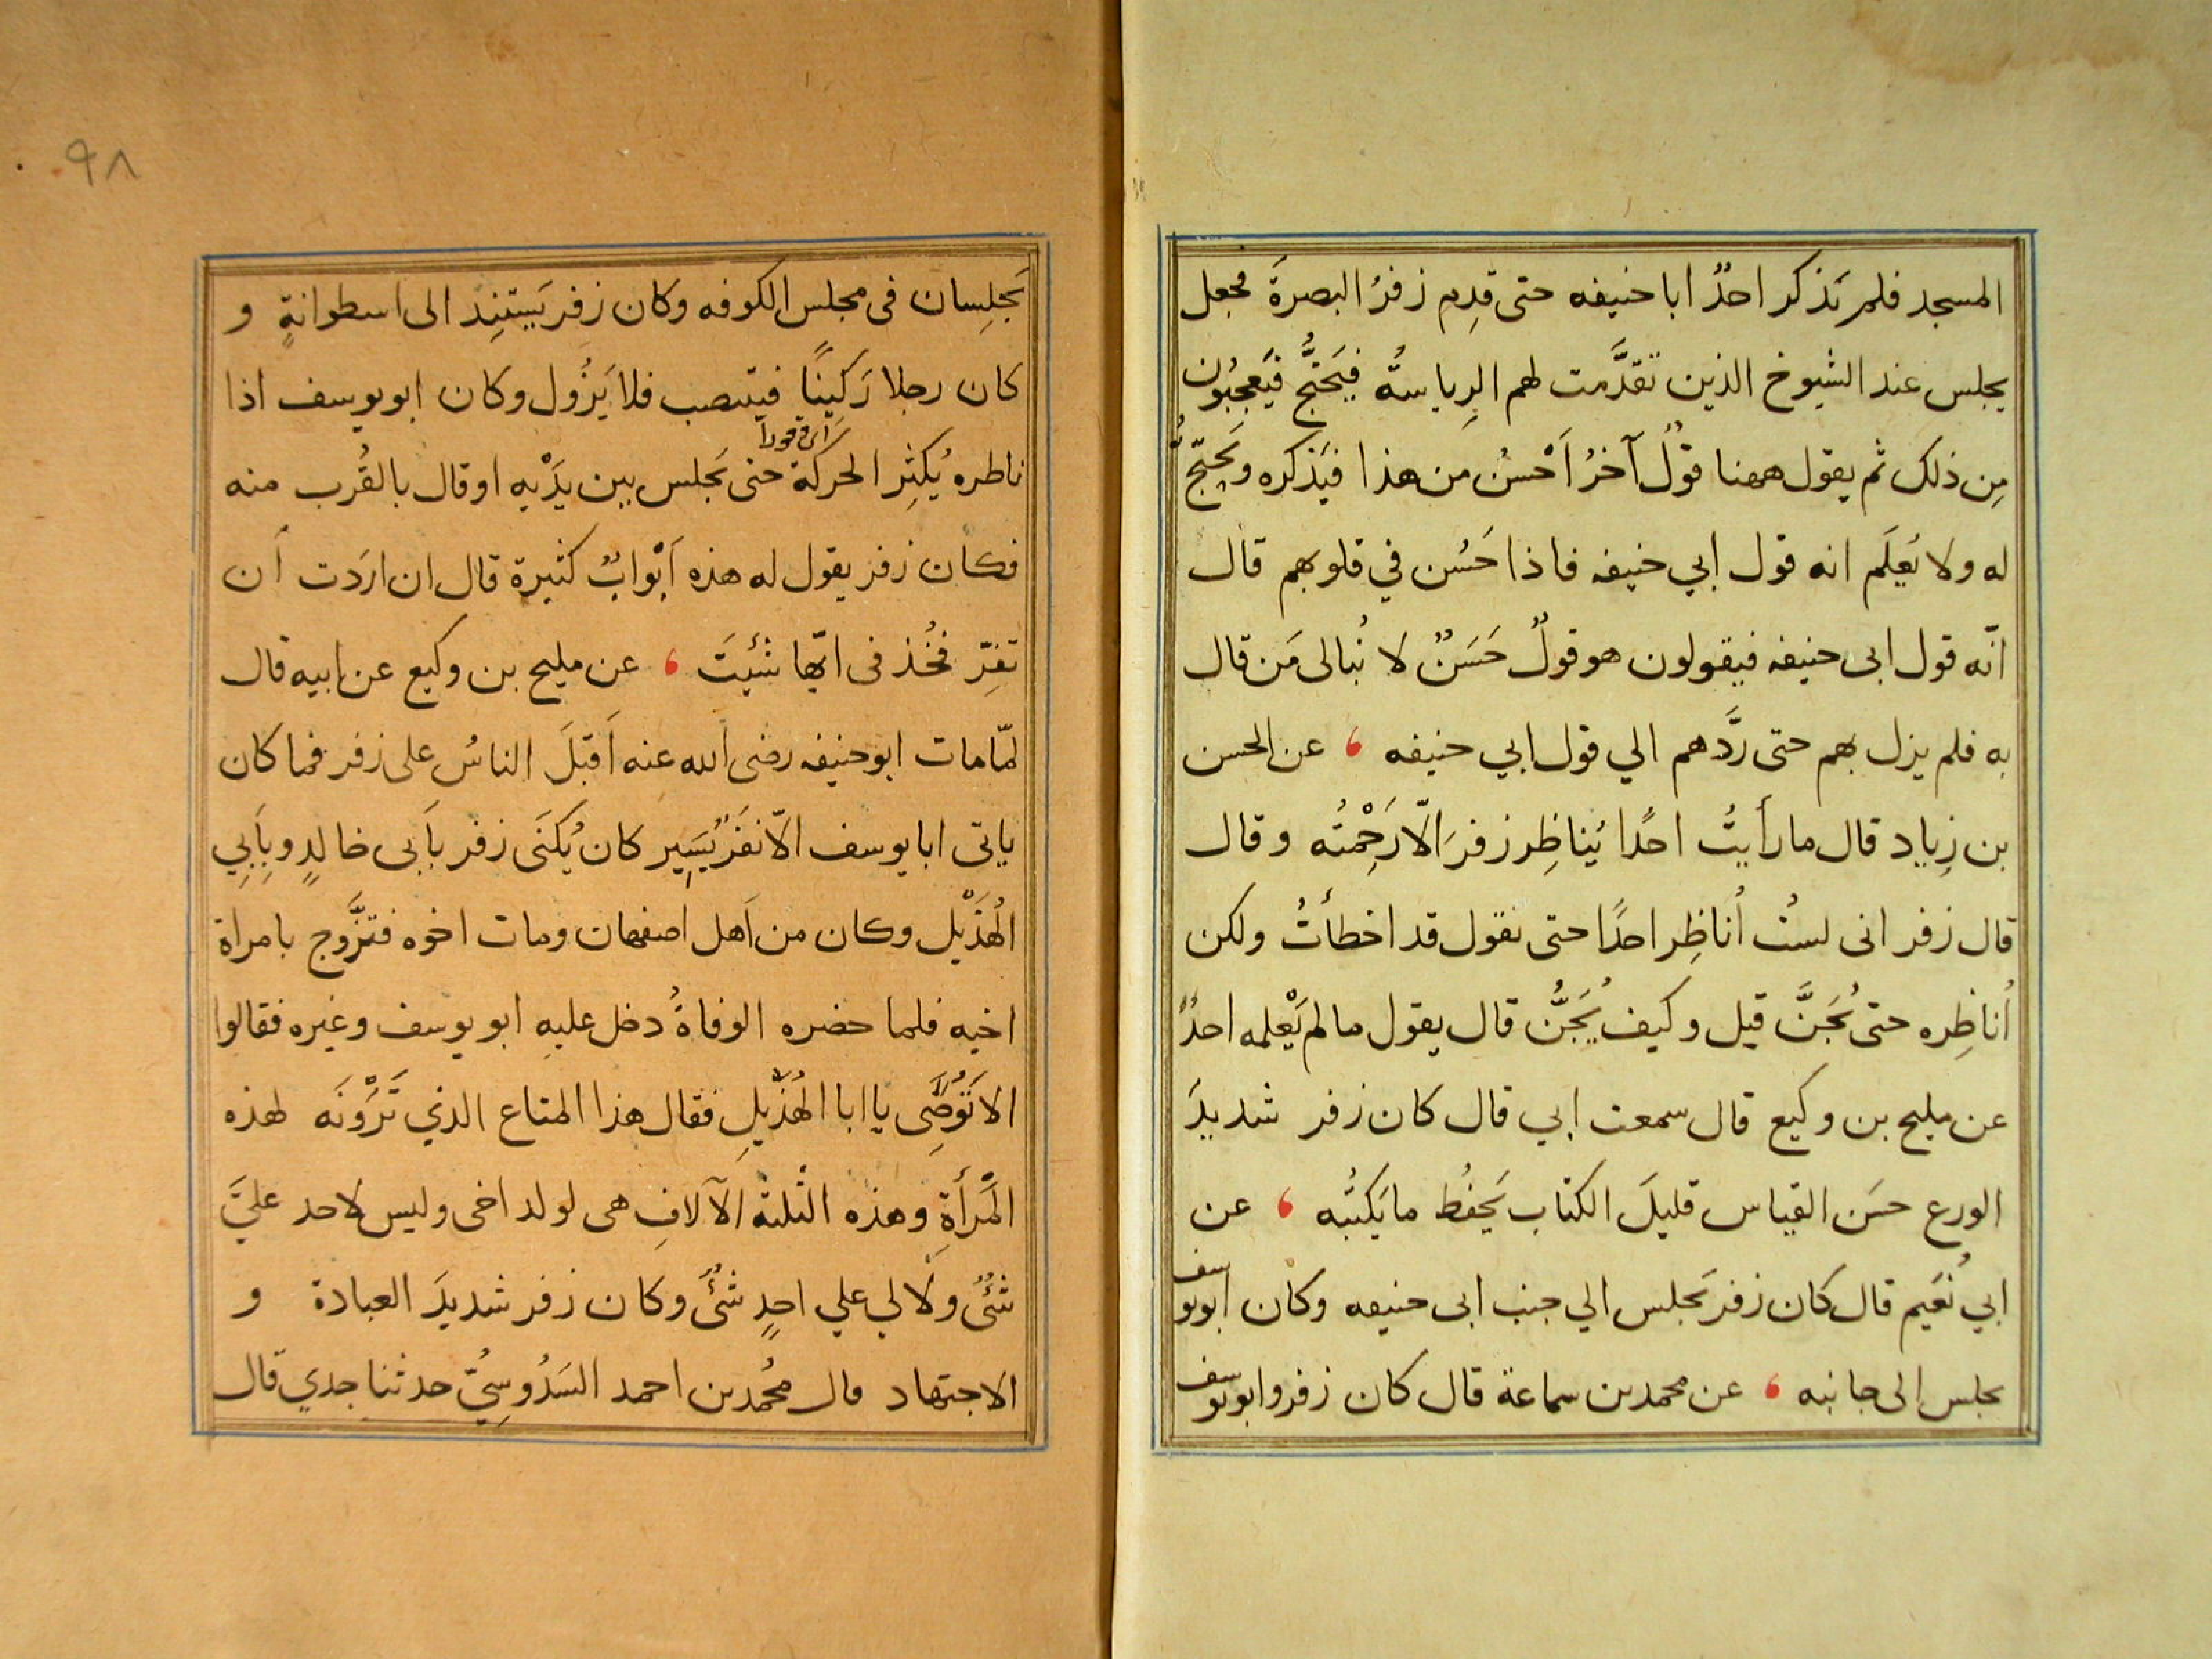 المسجد فلم يَذكر احدٌ ابا حنيفه حتى قدِم زفرُ البصرةَ فجعل
يجلس عند الشيوخ الذين تقدَّمت لهم الرِياسةُ فيَحتجُّ فيَعجبُون
مِن ذلك ثم يقول ههنا قولٌ آخرُ اَحْسنُ من هذا فيَذكره ويَحتجّ
له ولا يَعلَم انه قول ابي حنيفه فاذا حَسُن في قلوبهم قال
انّه قول ابى حنيفه فيقولون هو قولٌ حَسَنٌ لا نُبالى مَن قال
به فلم يزل بهم حتى ردَّهم الي قول ابي حنيفه ، عن الحسن
بن زِياد قال ما رأيتُ احدًا يُناظِر زفرَ الّا رَحِمْتُه وقال
قال زفر انى لستُ اُناظِر احدًا حتى نقول قد اخطأتُ ولكن
اُناظِره حتى يُجَنَّ قيل وكيف يُجَنُّ قال يقول ما لم يَعْلمه احدٌ
عن مليح بن وكيع قال سمعت ابي قال كان زفر شديدَ
الورع حسَن القياس قليلَ الكتاب يَحفُظ ما يَكتُبه ، عن
ابي نُعَيم قال كان زفر يَجلس الي جنب ابى حنيفه وكان ابويوسف
يجلس الى جانبه ، عن محمد بن سماعة قال كان زفر وابويوسف
٩٨
يَجلِسان فى مجلس الكوفه وكان زفر يَستنِد الى اسطوانةٍ و
كان رجلا رَكينًا فينتصب فلا يَزُول وكان ابويوسف اذا
اى وقورا
ناطره يُكثِر الحركة حتى يَجلس بين يَدَيْه او قال بالقُرب منه
فكان زفر يقول له هذه اَبْوابٌ كثيرة قال ان ارَدت اَن
تفِرّ فخُذ فى ايّها شئيتَ ، عن مليح بن وكيع عن ابيه قال
لمّا مات ابو حنيفه رضى الله عنه اَقبلَ الناسُ على زفر فما كان
ياتى ابا يوسف الّا نفَرٌ يَسِير كان يُكنَى زفر باَبى خالدٍ وبِاَبِي
الهُذَيْل وكان من اَهل اصفهان ومات اخوه فتزَّوج بامراة
اخيه فلما حضره الوفاةُ دخل عليه ابو يوسف وغيره فقالوا
الا تَوُصِّى يا ابا الهُذَيلِ فقال هذا المتاع الذي تَرَوْنَه لهذه
المَرأةِ وهذه الثلثة الآلافِ هى لولد اخى وليس لاحد عليَّ
شئٌ ولا لي علي احدٍ شئٌ وكان زفر شديدَ العبادة و
الاجتهاد قال محُمد بن احمد السَدُوسِيّ حدثنا جدي قال